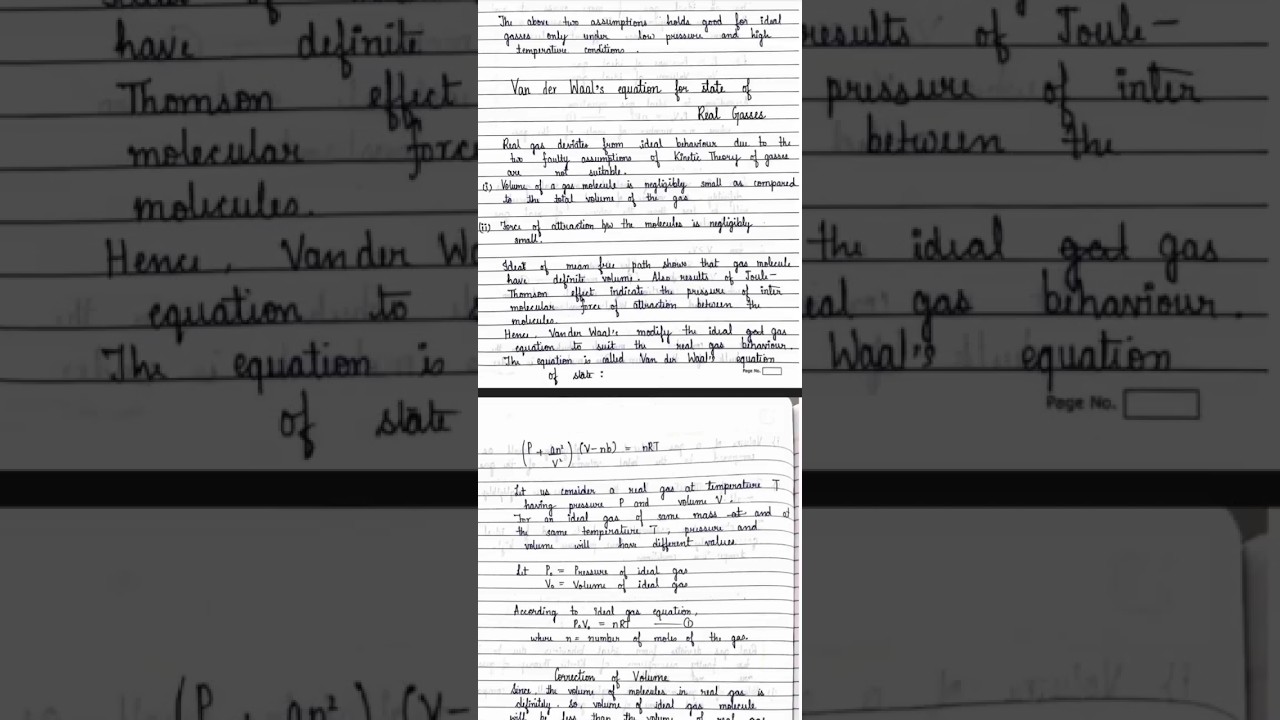 The above two assumptions holds good for ideal
gasses only under low pressure and high
temperature conditions.
Van der Waal's equation for state of
Real Gasses
Real gas deviates from ideal behaviour due to the
two faulty assumptions of Kinetic Theory of gasses
are not suitable.
(i) Volume of a gas molecule is negligibly small as compared
to the total volume of the gas
(ii) Force of attraction b/w the molecules is negligibly
small.
Ideal of mean free path shows that gas molecule
have definite volume. Also results of Joule-
Thomson effect indicate the pressure of inter
molecular force of attraction between the
molecules.
Hence, Van der Waal's modify the ideal good gas
equation to suit the real gas behaviour.
The equation is called Van der Waal's equation
of state :
Page No.
(P + an²/V²) (V-nb) = nRT
Let us consider a real gas at temperature T
having pressure P and volume V.
For an ideal gas of same mass at and at
the same temperature T, pressure and
volume will have different values.
Let P₀ = Pressure of ideal gas
V₀ = Volume of ideal gas
According to Ideal gas equation,
P₀V₀ = nRT —— ①
where n = number of moles of the gas.
Correction of Volume
Since, the volume of molecules in real gas is
definitely. So, volume of ideal gas molecule
will be less than the volume of real gas
have definite
Thomson effect
molecular force
molecules.
Hence, Van der Wa
equation to s
The equation is
of state
(P + an²
results of Joule-
pressure of inter
between the
the ideal good gas
eal gas behaviour.
Waal's equation
Page No.
(V-